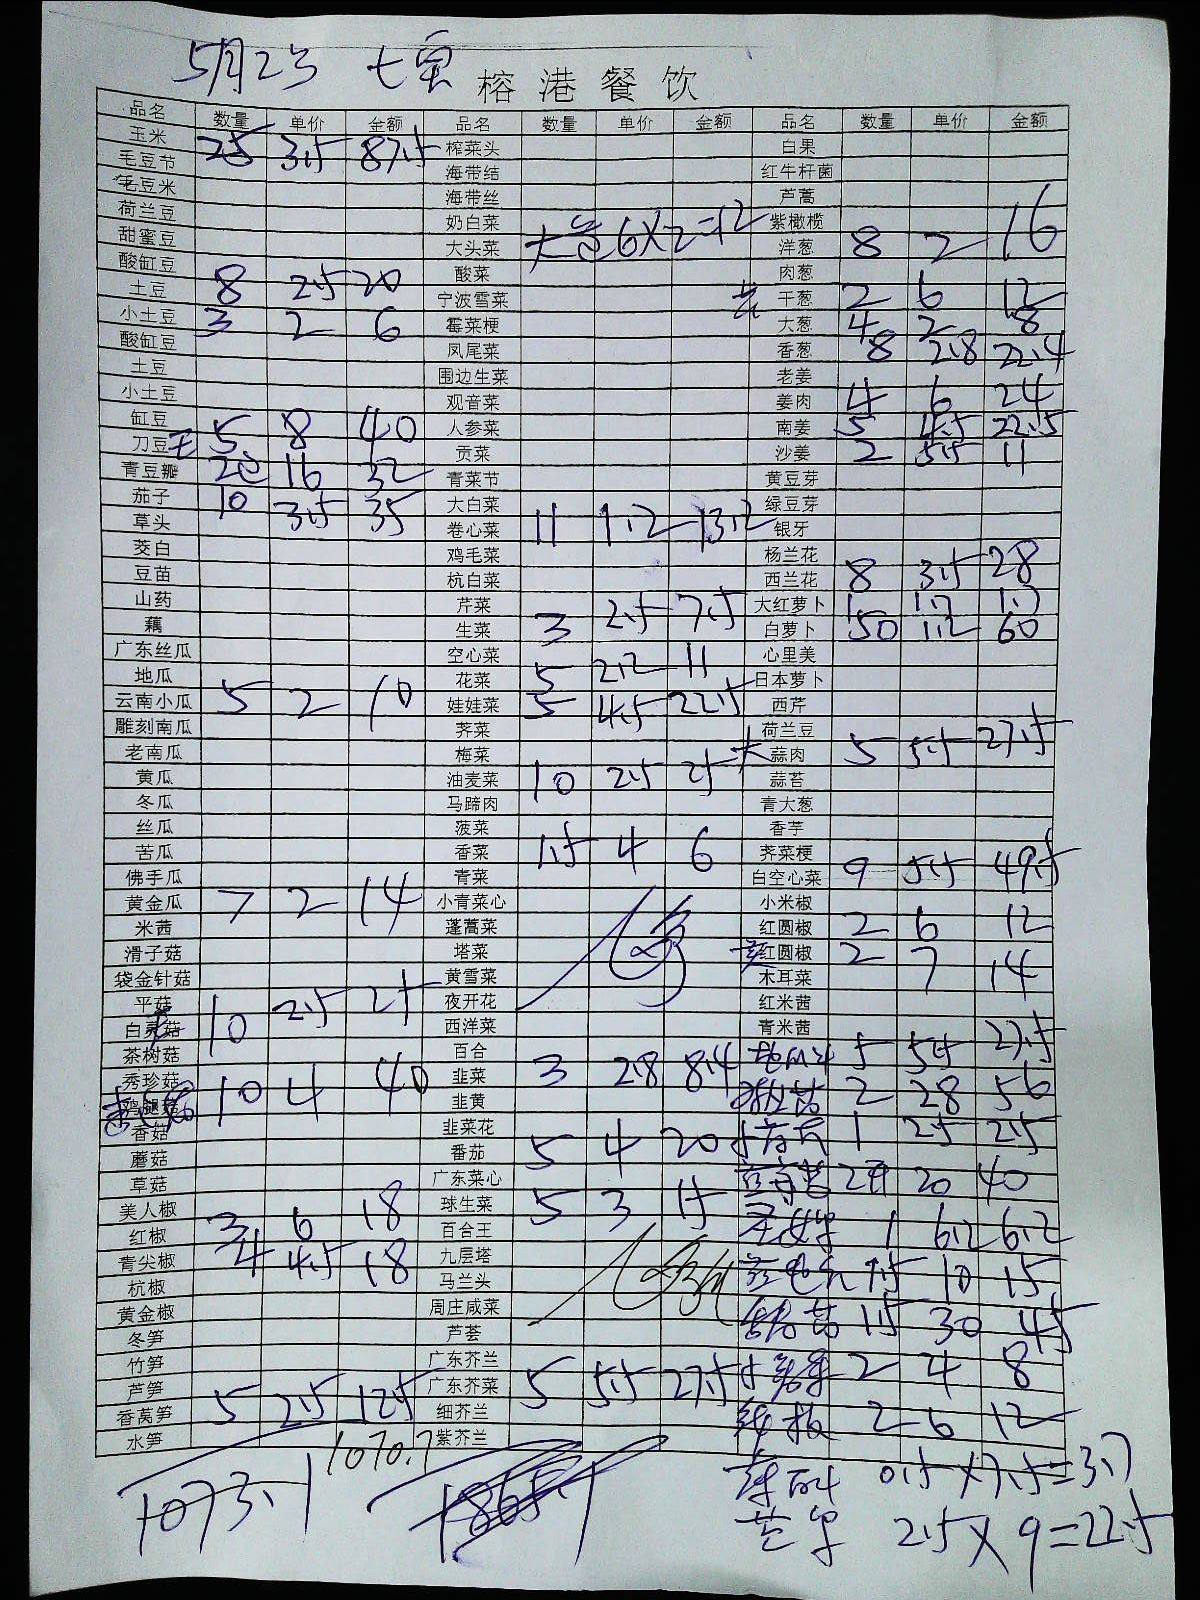 5月23
榕港餐饮
品名 数量 单价 金额 品名 数量 单价 金额 品名 数量 单价 金额
玉米 25 3.5 87.5 榨菜头 白果
毛豆节 海带结 红牛杆菌
毛豆米 海带丝 芦蒿
荷兰豆 奶白菜 紫橄榄
甜蜜豆 大头菜 6×2=12 洋葱 8 2 16
酸缸豆 酸菜 肉葱
土豆 8 2.5 20 宁波雪菜 干葱 2 6 12
小土豆 3 2 6 霉菜梗 大葱 4 2 8
酸缸豆 凤尾菜 香葱 8 2.8 22.4
土豆 围边生菜 老姜
小土豆 观音菜 姜肉 4 6 24
缸豆 5 8 40 人参菜 南姜 5 4.5 22.5
刀豆 贡菜 沙姜 2 5.5 11
青豆瓣 16 32 青菜节 黄豆芽
茄子 10 3.5 35 大白菜 绿豆芽
草头 卷心菜 11 1.2 13.2 银牙
茭白 鸡毛菜 杨兰花
豆苗 杭白菜 西兰花 8 3.5 28
山药 芹菜 大红萝卜 1 1.7 1.7
藕 生菜 3 2.5 7.5 白萝卜 50 1.2 60
广东丝瓜 空心菜 心里美
地瓜 花菜 5 2.2 11 日本萝卜
云南小瓜 5 2 10 娃娃菜 5 4.5 22.5 西芹
雕刻南瓜 荠菜 荷兰豆
老南瓜 梅菜 蒜肉 5 5.5 27.5
黄瓜 油麦菜 10 2.5 25 蒜苔
冬瓜 马蹄肉 青大葱
丝瓜 菠菜 香芋
苦瓜 香菜 1.5 4 6 荠菜梗
佛手瓜 青菜 白空心菜 9 5.5 49.5
黄金瓜 7 2 14 小青菜心 小米椒
米茜 蓬蒿菜 红圆椒 2 6 12
滑子菇 塔菜 红圆椒 2 7 14
袋金针菇 黄雪菜 木耳菜
平菇 夜开花 红米茜
白灵菇 10 2.5 25 西洋菜 青米茜
茶树菇 百合 5 5.5 27.5
秀珍菇 10 4 40 韭菜 3 2.8 8.4 2 28 56
鸡腿菇 韭黄
香菇 韭菜花 1 25 25
蘑菇 番茄 5 4 20
草菇 广东菜心 20 40
美人椒 球生菜 5 3 15
红椒 3 6 18 百合王 1 6.2 6.2
青尖椒 4 4.5 18 九层塔
杭椒 马兰头 1.5 10 15
黄金椒 周庄咸菜
冬笋 芦荟 1.5 30 45
竹笋 广东芥兰 2 4 8
芦笋 广东芥菜 5 5.5 27.5
香莴笋 5 2.5 12.5 细芥兰 2 6 12
水笋 紫芥兰
1070.7
1073.1
0.5×7.5=3.7
2.5×9=22.5